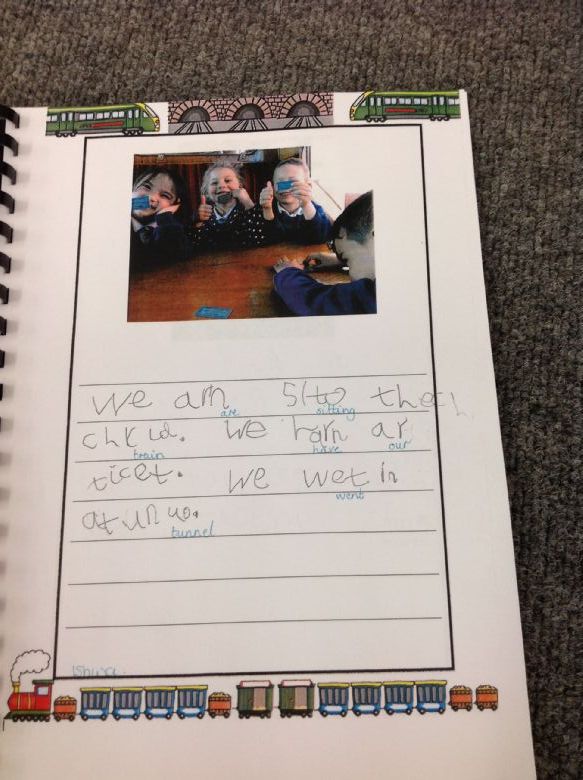 we am sito the
are sitting
chru. we harn ar
train have our
ticet. we wet in
went
atunuo.
tunnel